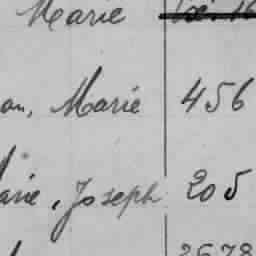 Marie
an, Marie 456
arie, Joseph 205
2678